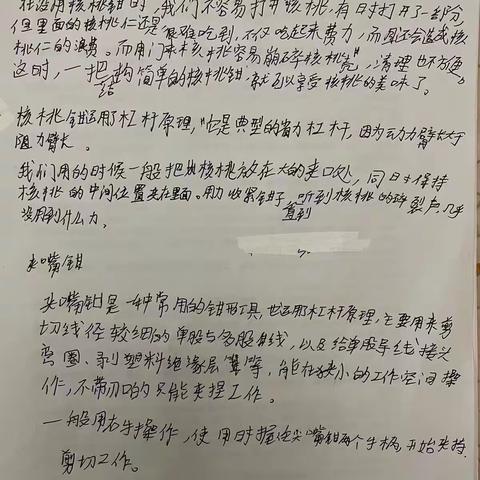 在没用核桃钳时,我们不容易打开核桃,有时打开了一部分
但里面的核桃仁还是很难吃到,不仅吃起来费力,而且还会造成核
桃仁的浪费。而用门夹核桃容易崩碎核桃壳,清理也不方便。
这时,一把结构简单的核桃钳就可以享受核桃的美味了。
核桃钳运用杠杆原理,它是典型的省力杠杆,因为动力臂长大于
阻力臂长。
我们用的时候一般把核桃放在大的夹口处,同时保持
核桃的中间位置夹在里面。用力收紧钳子,直到听到核桃的碎裂声,几乎
没用到什么力。
尖嘴钳
尖嘴钳是一种常用的钳形工具,也运用杠杆原理,主要用来剪
切线径较细的单股与多股线,以及给单股导线接头
弯圈、剥塑料绝缘层等等,能在狭小的工作空间操
作,不带刃口的只能夹捏工作。
一般用右手操作,使用时握住尖嘴钳两个手柄,开始夹持
剪切工作。